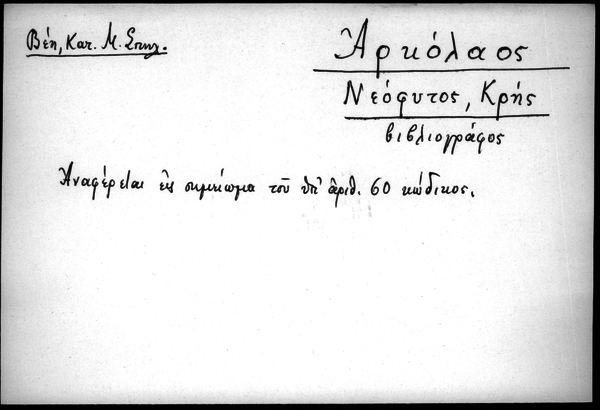 Βέη, Κατ. Μ. Σπηλ.
Ἀρκόλαος
Νεόφυτος, Κρής
βιβλιογράφος
Ἀναφέρεται εἰς σημείωμα τοῦ ὑπ' ἀριθ. 60 κώδικος.